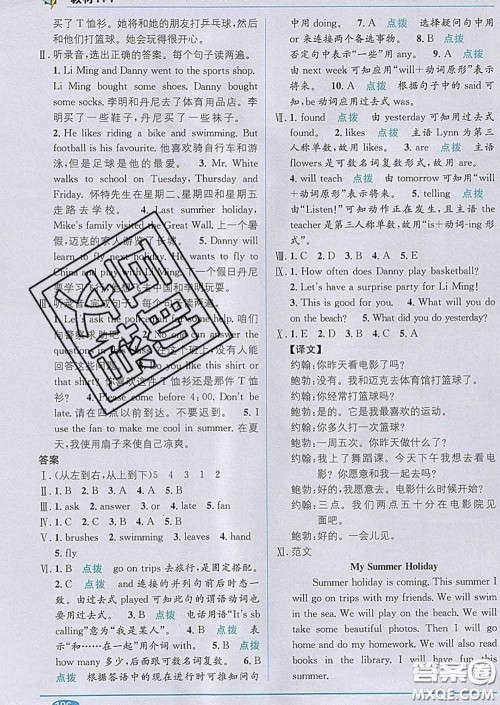 教材
买了 T 恤衫。她将和她的朋友打乒乓球,
和他们打篮球。她会玩得很开心。
Ⅱ. 听录音,选出正确的答案。每个句子读两遍。
1. Li Ming and Danny went to the sports shop.
Li Ming bought some shoes. Danny bought
some socks. 李明和丹尼去了体育用品店。李
明买了一些鞋子,丹尼买了一些袜子。
2. He likes riding a bike and swimming. But
football is his favourite. 他喜欢骑自行车和游
泳,但是足球是他的最爱。 3. Mr. White
walks to school on Tuesday, Thursday and
Friday. 怀特先生在星期二、星期四和星期五
走路去学校。 4. Last summer holiday,
Mike's family visited the Great Wall. 上一个暑
假,迈克的家人游览了长城。 5. Danny will
learn to fly next holiday. He wants to fly to
China and play with Li Ming. 下一个假日丹尼
要学习飞行。他想飞来中国和李明玩耍。
Ⅲ. 听录音,完成句子。每个句子读两遍。
1. Let's ask the policeman for some help. 咱们
向警察求助吧。 2. No one can answer the
question. 没有人能
回答这些问题。 3. Do you like this shirt or
that shirt? 你喜欢这件 T 恤衫还是那件 T 恤
衫? 4. Please come before 4:00. Don't be
late. 请在四点以前到达。不要迟到。 5. I
use the fan to make me cool in summer. 在夏
天,我使用扇子来使自己凉爽。
答案
Ⅰ. (从左到右,从上到下)5 4 3 1 2
Ⅱ. 1. B 2. B 3. A 4. A 5. B
Ⅲ. 1. ask 2. answer 3. or 4. late 5. fan
Ⅳ. 1. C 2. B 3. A 4. A 5. B
Ⅴ. 1. brushes 2. swimming 3. leaves 4. hand
5. fly
Ⅵ. 1. B 点拨 go on trips 去旅行,是固定搭配。
2. C 点拨 and 连接的并列句前后时态一
致。由过去式 played 可知此句的谓语动词也
要用过去式。 3. B 点拨 电话用语“It's sb
calling”意为“我是某人”。 4. B 点拨 表示
“和……在一起”用介词 with。 5. B 点拨
how many 多少,后面跟可数名词复数。 6. A
点拨 根据答语中的现在式可知问句也用现在
式。 7. A 点拨 will 后跟动词原形,
表示将来。 8. A 点拨 选择疑问句中用
or 来连接两个备选事物。 9. B 点拨
否定句中表示“一些”用 any。
由 next week 可知应用“will+动词原形”表示
将来。 10. A 点拨 根据句子中的 said 可
知,be 应使用过去式 was。
Ⅶ. 1. found 点拨 由 yesterday 可知用过去
式。 2. likes 点拨 主语 Lynn 为第三
人称单数,故用 likes。 3. are 点拨 主语
flowers 是可数名词复数形式,故用 are。
4. will read 点拨 由 tomorrow 可知用“will
+动词原形”表示将来。 5. telling 点拨
由“Listen!”可知动作正在发生,且主语 the
teacher 是第三人称单数,故用“is+动词-ing 形
式”。
Ⅷ. 1. C 2. D 3. B 4. E 5. A
Ⅸ. 1. How often does Danny play basketball?
2. Let's have a surprise party for Li Ming!
3. This is good for you. 4. What will you do
on the beach? 5. What did you do yesterday?
Ⅹ. 1. B 2. D 3. E 4. C 5. A
【译文】
约翰:你昨天看电影了吗?
鲍勃:没有。我和迈克去体育馆打篮球了。
约翰:你经常打篮球吗?
鲍勃:是的。它是我最喜欢的运动。
约翰:你多久打一次篮球?
鲍勃:一周五次。你昨天做什么了?
约翰:我上了舞蹈课。今天下午我想去看
电影。你愿意和我一起去吗?
鲍勃:好的,我愿意。电影什么时候开始?
约翰:三点。我们两点五十分在电影院见
面吧。
鲍勃:好的。一会儿见。
Ⅺ. 范文
My Summer Holiday
Summer holiday is coming. This summer I
will go on trips with my friends. We will swim
in the sea. We will play on the beach. We will
take some beautiful photos. Then I will go
home and do my homework. We will also read
books in the library. I will have fun this
summer.
106
答案圈
MXQE.COM